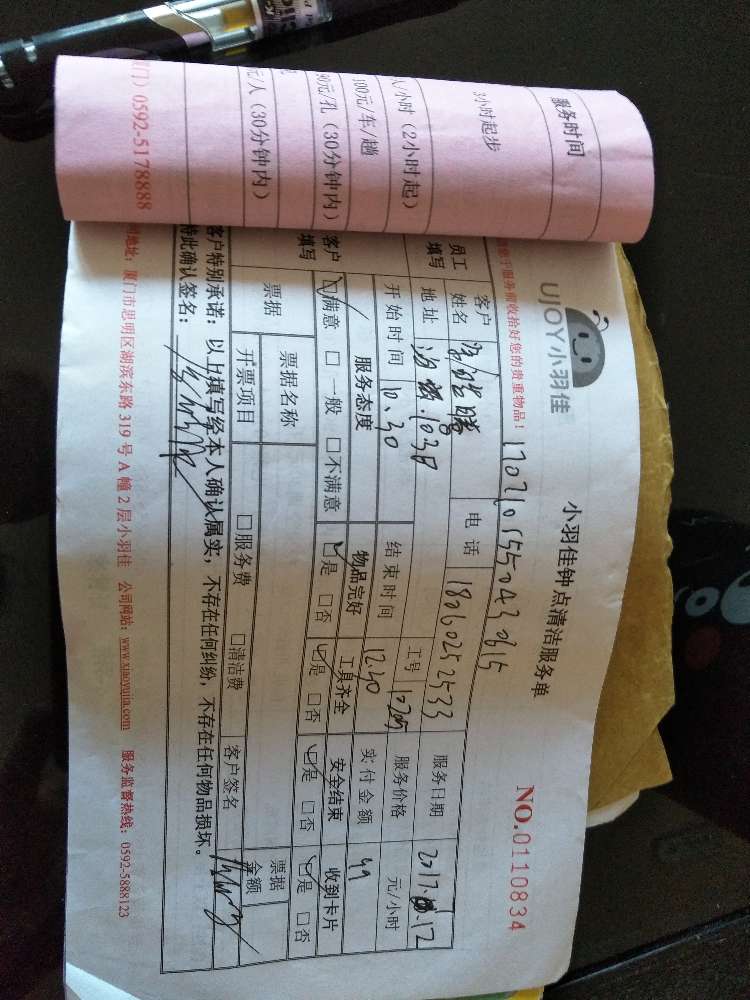 服务时间
3小时起步
人/小时（2小时起）
100元/车/趟
90元/孔（30分钟内）
元/人（30分钟内）
门）0592-5178888
UJOY小羽佳
小羽佳钟点清洁服务单
NO.0110834
意于服务前收拾好您的贵重物品！
员工填写
客户姓名
电话 18060252533
服务日期
地址
工号
服务价格 元/小时
开始时间 10.30
结束时间 12.40
实付金额 49
客户填写
服务态度 物品完好 工具齐全 安全结束 收到卡片
☑满意 □一般 □不满意 ☑是 □否 ☑是 □否 ☑是 □否 ☑是 □否
票据 票据名称 客户签名 票据金额
开票项目 □服务费 □清洁费
客户特别承诺：以上填写经本人确认属实，不存在任何纠纷，不存在任何物品损坏。
特此确认签名：
司地址：厦门市思明区湖滨东路 319 号 A 幢 2 层小羽佳 公司网站：www.xiaoyujia.com 服务监督热线：0592-5888123